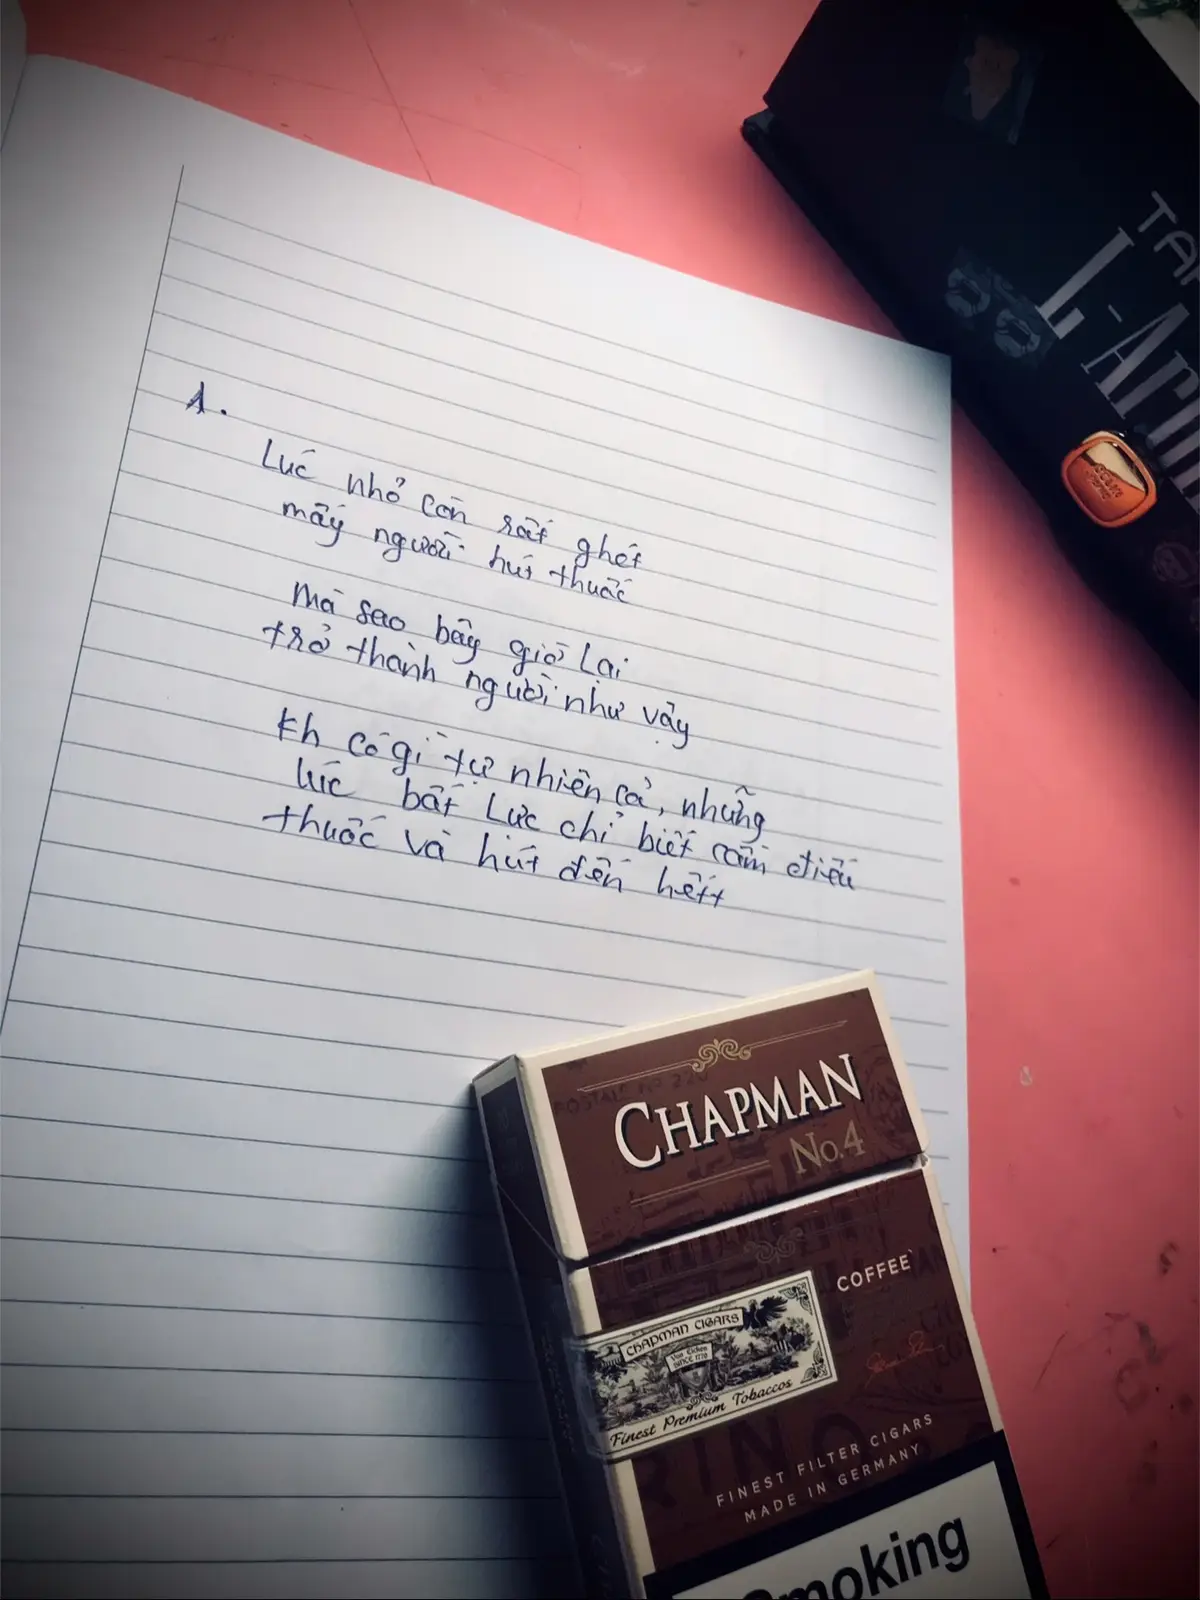 1.
Lúc nhỏ còn rất ghét
mấy người hút thuốc
Mà sao bây giờ lại
trở thành người như vậy
Kh có gì tự nhiên cả, những
lúc bất lực chỉ biết cầm điếu
thuốc và hút đến hết
L-Arm
CHAPMAN
No.4
COFFEE
CHAPMAN CIGARS
Von Eicken
SINCE 1770
Finest Premium Tobaccos
FINEST FILTER CIGARS
MADE IN GERMANY
Smoking